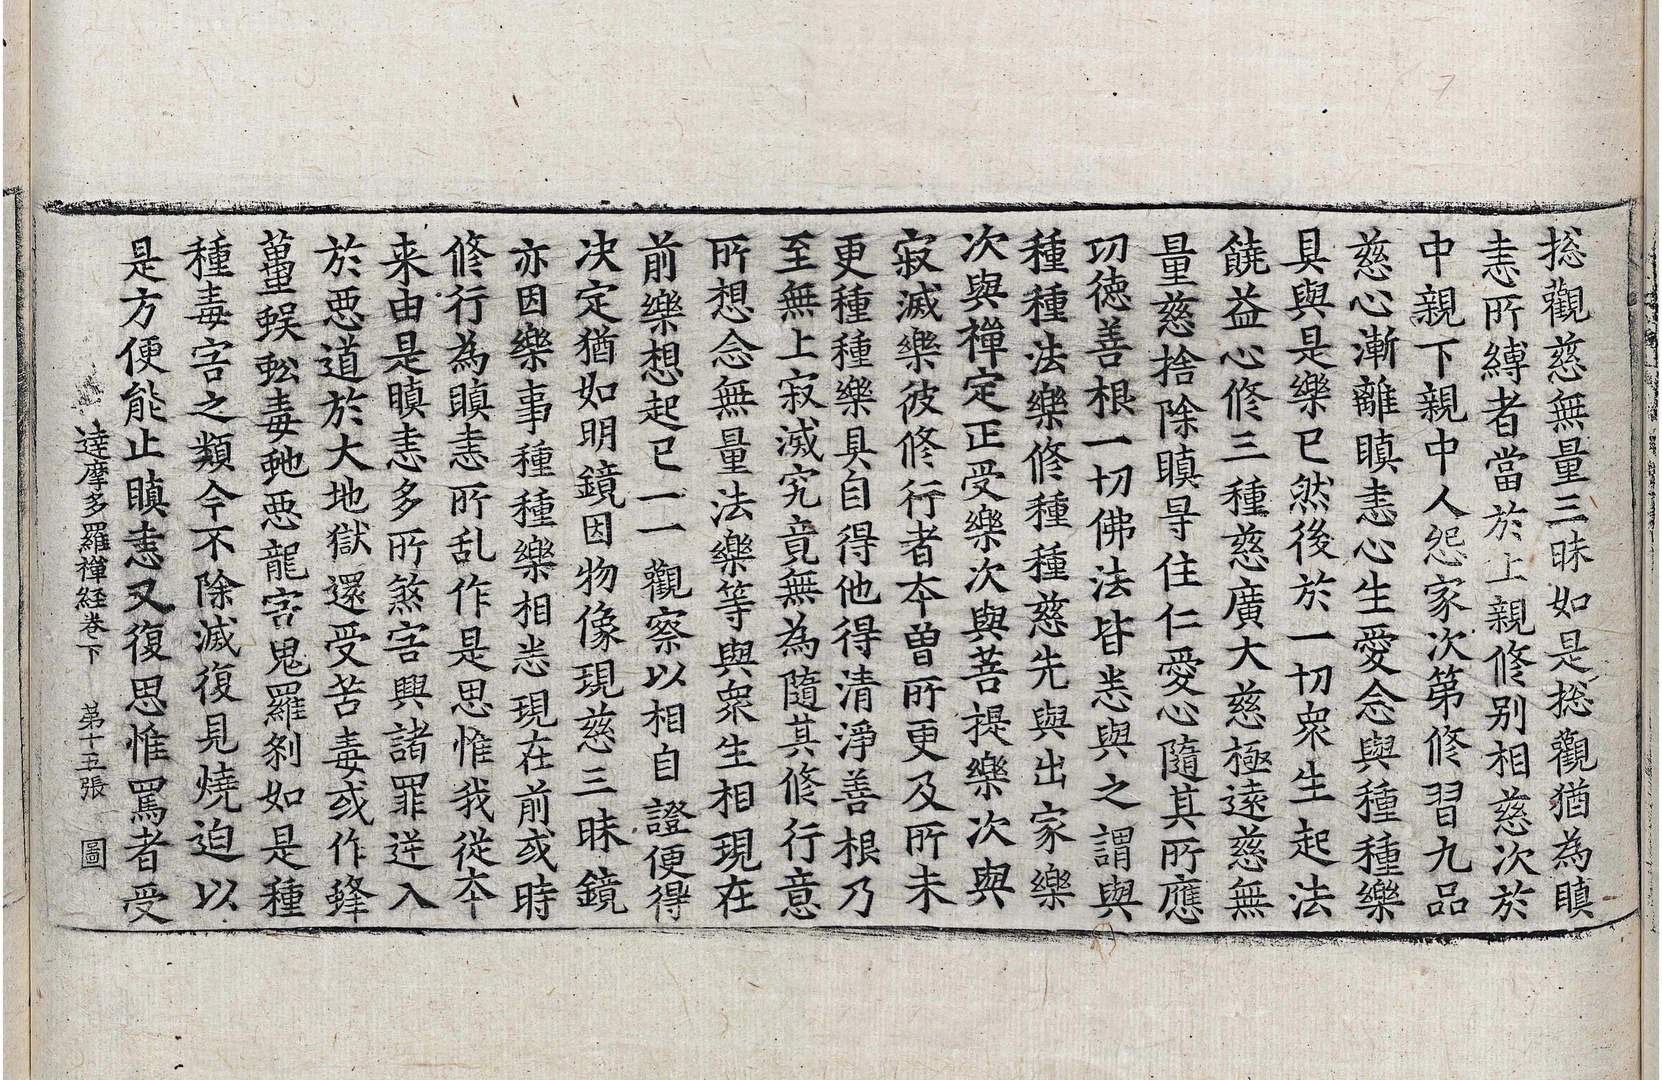 捴觀慈無量三昧如是捴觀猶為瞋
恚所縛者當於上親修别相慈次於
中親下親中人怨家次第修習九品
慈心漸離瞋恚心生愛念與種種樂
具與是樂已然後於一切眾生起法
饒益心修三種慈廣大慈極遠慈無
量慈捨除瞋㝵住仁愛心隨其所應
㓛德善根一切佛法皆悉與之謂與
種種法樂修種種慈先與出家樂
次與禪定正受樂次與菩提樂次與
寂滅樂彼修行者夲曽所更及所未
更種種樂具自得他得清淨善根乃
至無上寂滅究竟無為隨其修行意
所想念無量法樂等與眾生相現在
前樂想起已一一觀察以相自證便得
决定猶如明鏡因物像現慈三昧鏡
亦因樂事種種樂相悉現在前或時
修行為瞋恚所乱作是思惟我從夲
来由是瞋恚多所煞害興諸罪逆入
於惡道於大地獄還受苦毒或作蜂
蠆蜈蚣毒虵惡龍害鬼羅剎如是種
種毒害之類今不除滅復見燒迫以
是方便能止瞋恚又復思惟罵者受
達摩多羅禪経卷下 第十五張 圖